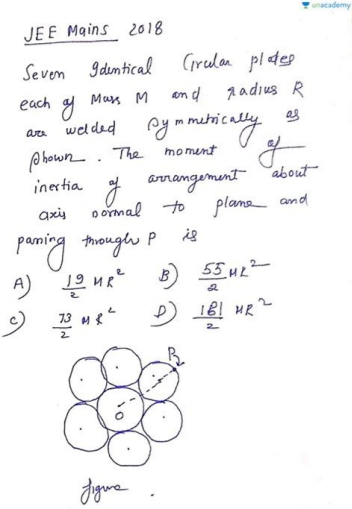 unacademy
JEE Mains 2018
Seven Identical Circular plates
each of Mass M and radius R
are welded symmetrically as
shown. The moment of
inertia of arrangement about
axis normal to plane and
passing through P is
A) 19/2 MR² B) 55/2 MR²
C) 73/2 MR² D) 181/2 MR²
P
O
figure .